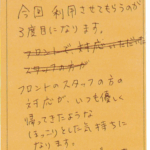 今回 利用させてもらうのが
3度目になります。
フロントで 対応
スタッフの方が
フロントのスタッフの方の
対応が、いつも優しく
帰ってきたような
ほっこりとした気持ちに
なります。